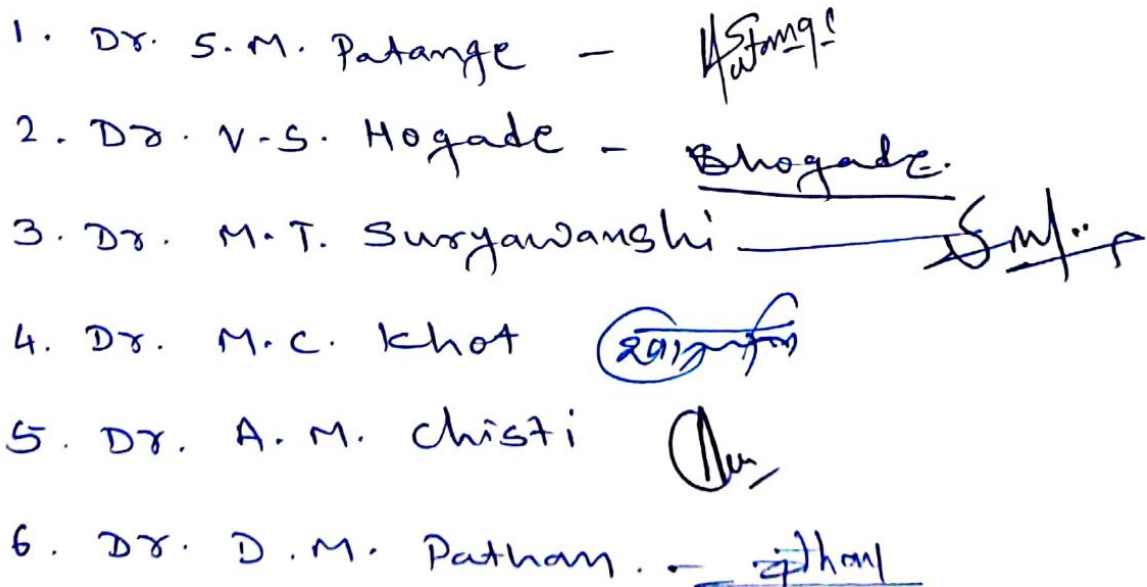 1. Dr. S.M. Patange -
2. Dr. V.S. Hogade - Bhogade.
3. Dr. M.T. Suryawanshi
4. Dr. M.C. Khot
5. Dr. A.M. Chisti
6. Dr. D.M. Pathan. -